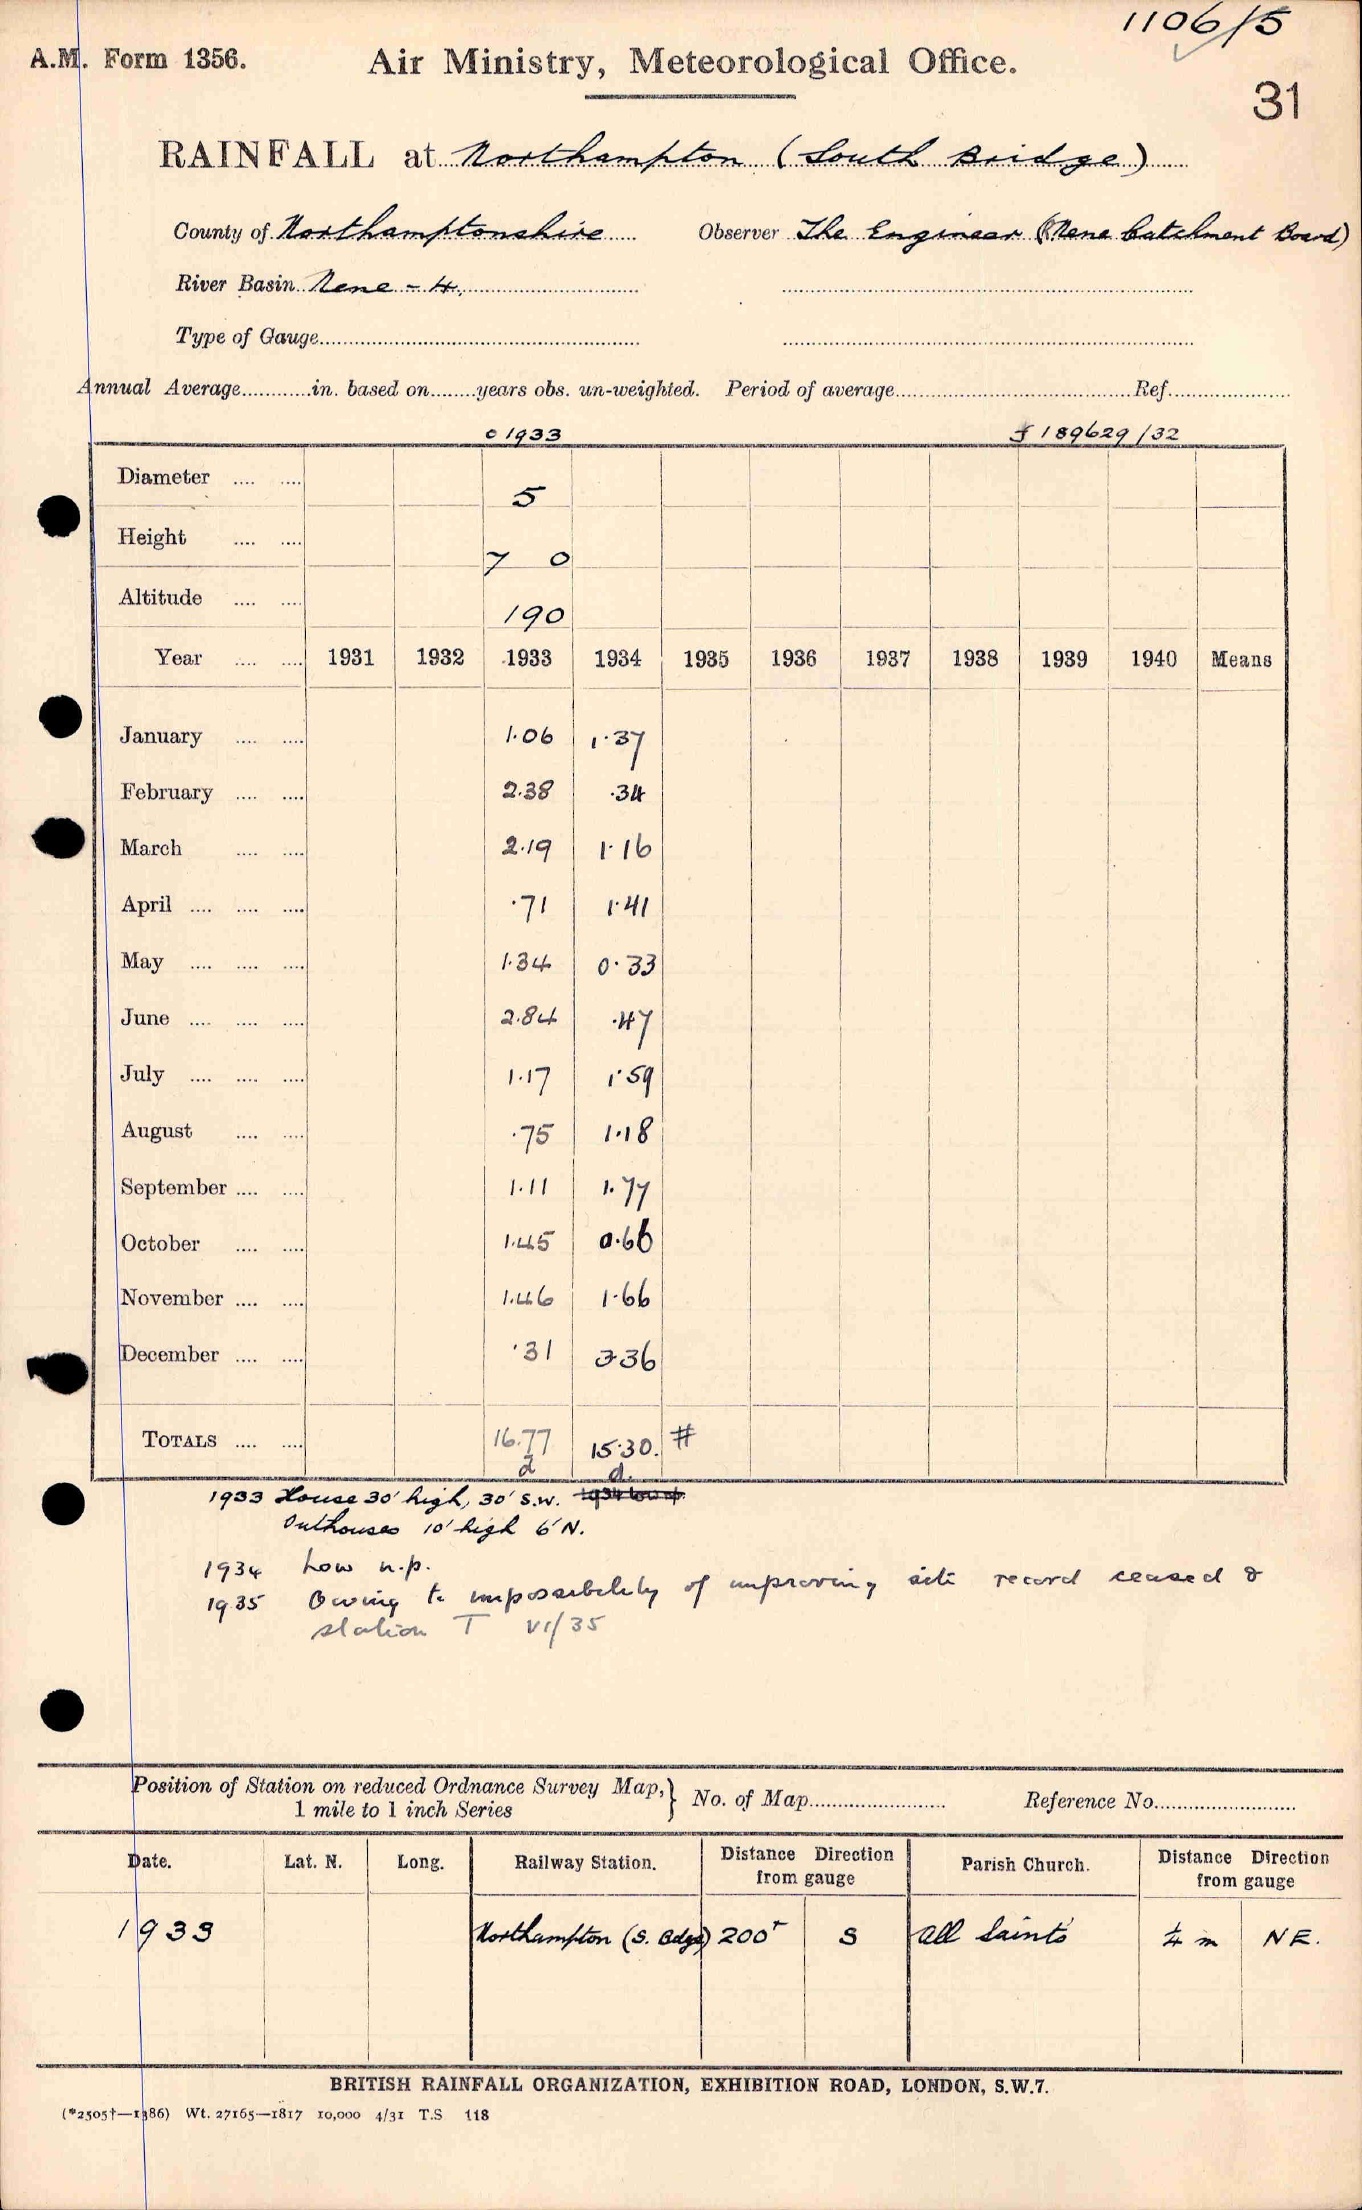 1106/5
A.M. Form 1356. Air Ministry, Meteorological Office.
31
RAINFALL at Northampton (South Bridge)
County of Northamptonshire Observer The Engineer (Nene Catchment Board)
River Basin Nene - 4.
Type of Gauge
Annual Average............in. based on........years obs. un-weighted. Period of average........Ref.........
c 1933 189629/32
Diameter .... .... 5
Height .... .... 7 0
Altitude .... .... 190
Year .... .... 1931 1932 1933 1934 1935 1936 1937 1938 1939 1940 Means
January .... .... 1.06 1.37
February .... .... 2.38 .34
March .... .... 2.19 1.16
April .... .... .... .71 1.41
May .... .... .... 1.34 0.33
June .... .... .... 2.84 .47
July .... .... .... 1.17 1.59
August .... .... .75 1.18
September .... .... 1.11 1.77
October .... .... 1.45 0.66
November .... .... 1.46 1.66
December .... .... .31 3.36
TOTALS .... .... 16.77 15.30. #
d d.
1933 House 30' high, 30' S.W.
Outhouses 10' high 6' N.
1934 Low n.p.
1935 Owing to impossibility of improving site record ceased &
station T VI/35
Position of Station on reduced Ordnance Survey Map,} No. of Map........ Reference No.........
1 mile to 1 inch Series
Date. Lat. N. Long. Railway Station. Distance Direction from gauge Parish Church. Distance Direction from gauge
1933 Northampton (S. Bdge) 200 S All Saints ¼ m NE.
BRITISH RAINFALL ORGANIZATION, EXHIBITION ROAD, LONDON, S.W.7.
(*2505†—1386) Wt. 27165—1817 10,000 4/31 T.S 118